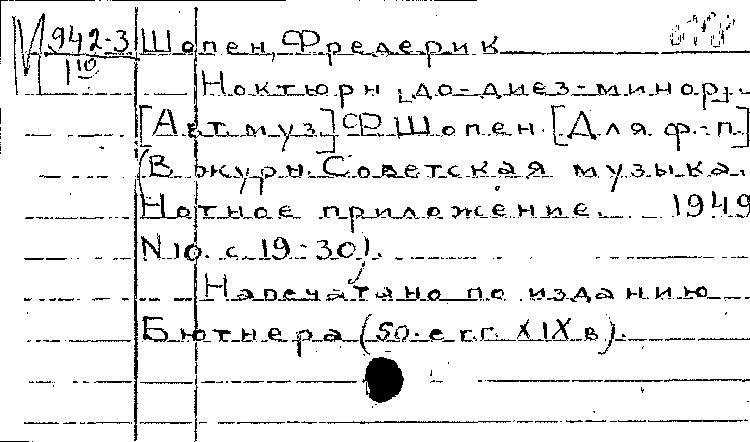 М 942-3 Шопен, Фредерик
1 10 Ноктюрн [до-диез-минор].
[Авт. муз.] Ф. Шопен. [Для ф.-п.]
(В журн. Советская музыка.
Нотное приложение. 1949
N 10. с. 19-30).
Напечатано по изданию
Бютнера (50-е г.г. XIX в).